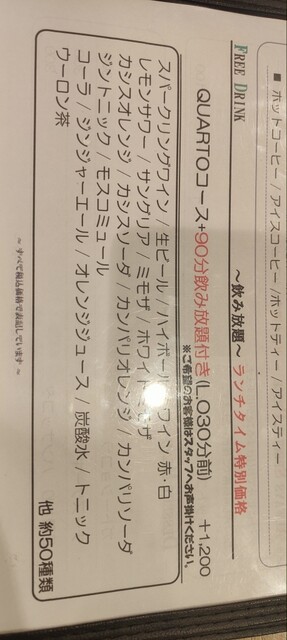 ■ ホットコーヒー / アイスコーヒー /ホットティー / アイスティー
FREE DRINK
～飲み放題～ ランチタイム特別価格
QUARTOコース+90分飲み放題付き(L.O30分前) ＋1,200
※ご希望のお客様はスタッフへお声掛けください。
スパークリングワイン / 生ビール / ハイボール / ワイン 赤・白
レモンサワー / サングリア / ミモザ / ホワイトミモザ
カシスオレンジ / カシスソーダ / カンパリオレンジ / カンパリソーダ
ジントニック / モスコミュール
コーラ / ジンジャーエール / オレンジジュース / 炭酸水 / トニック
ウーロン茶
他 約50種類
～ すべて税込価格で表記しています ～